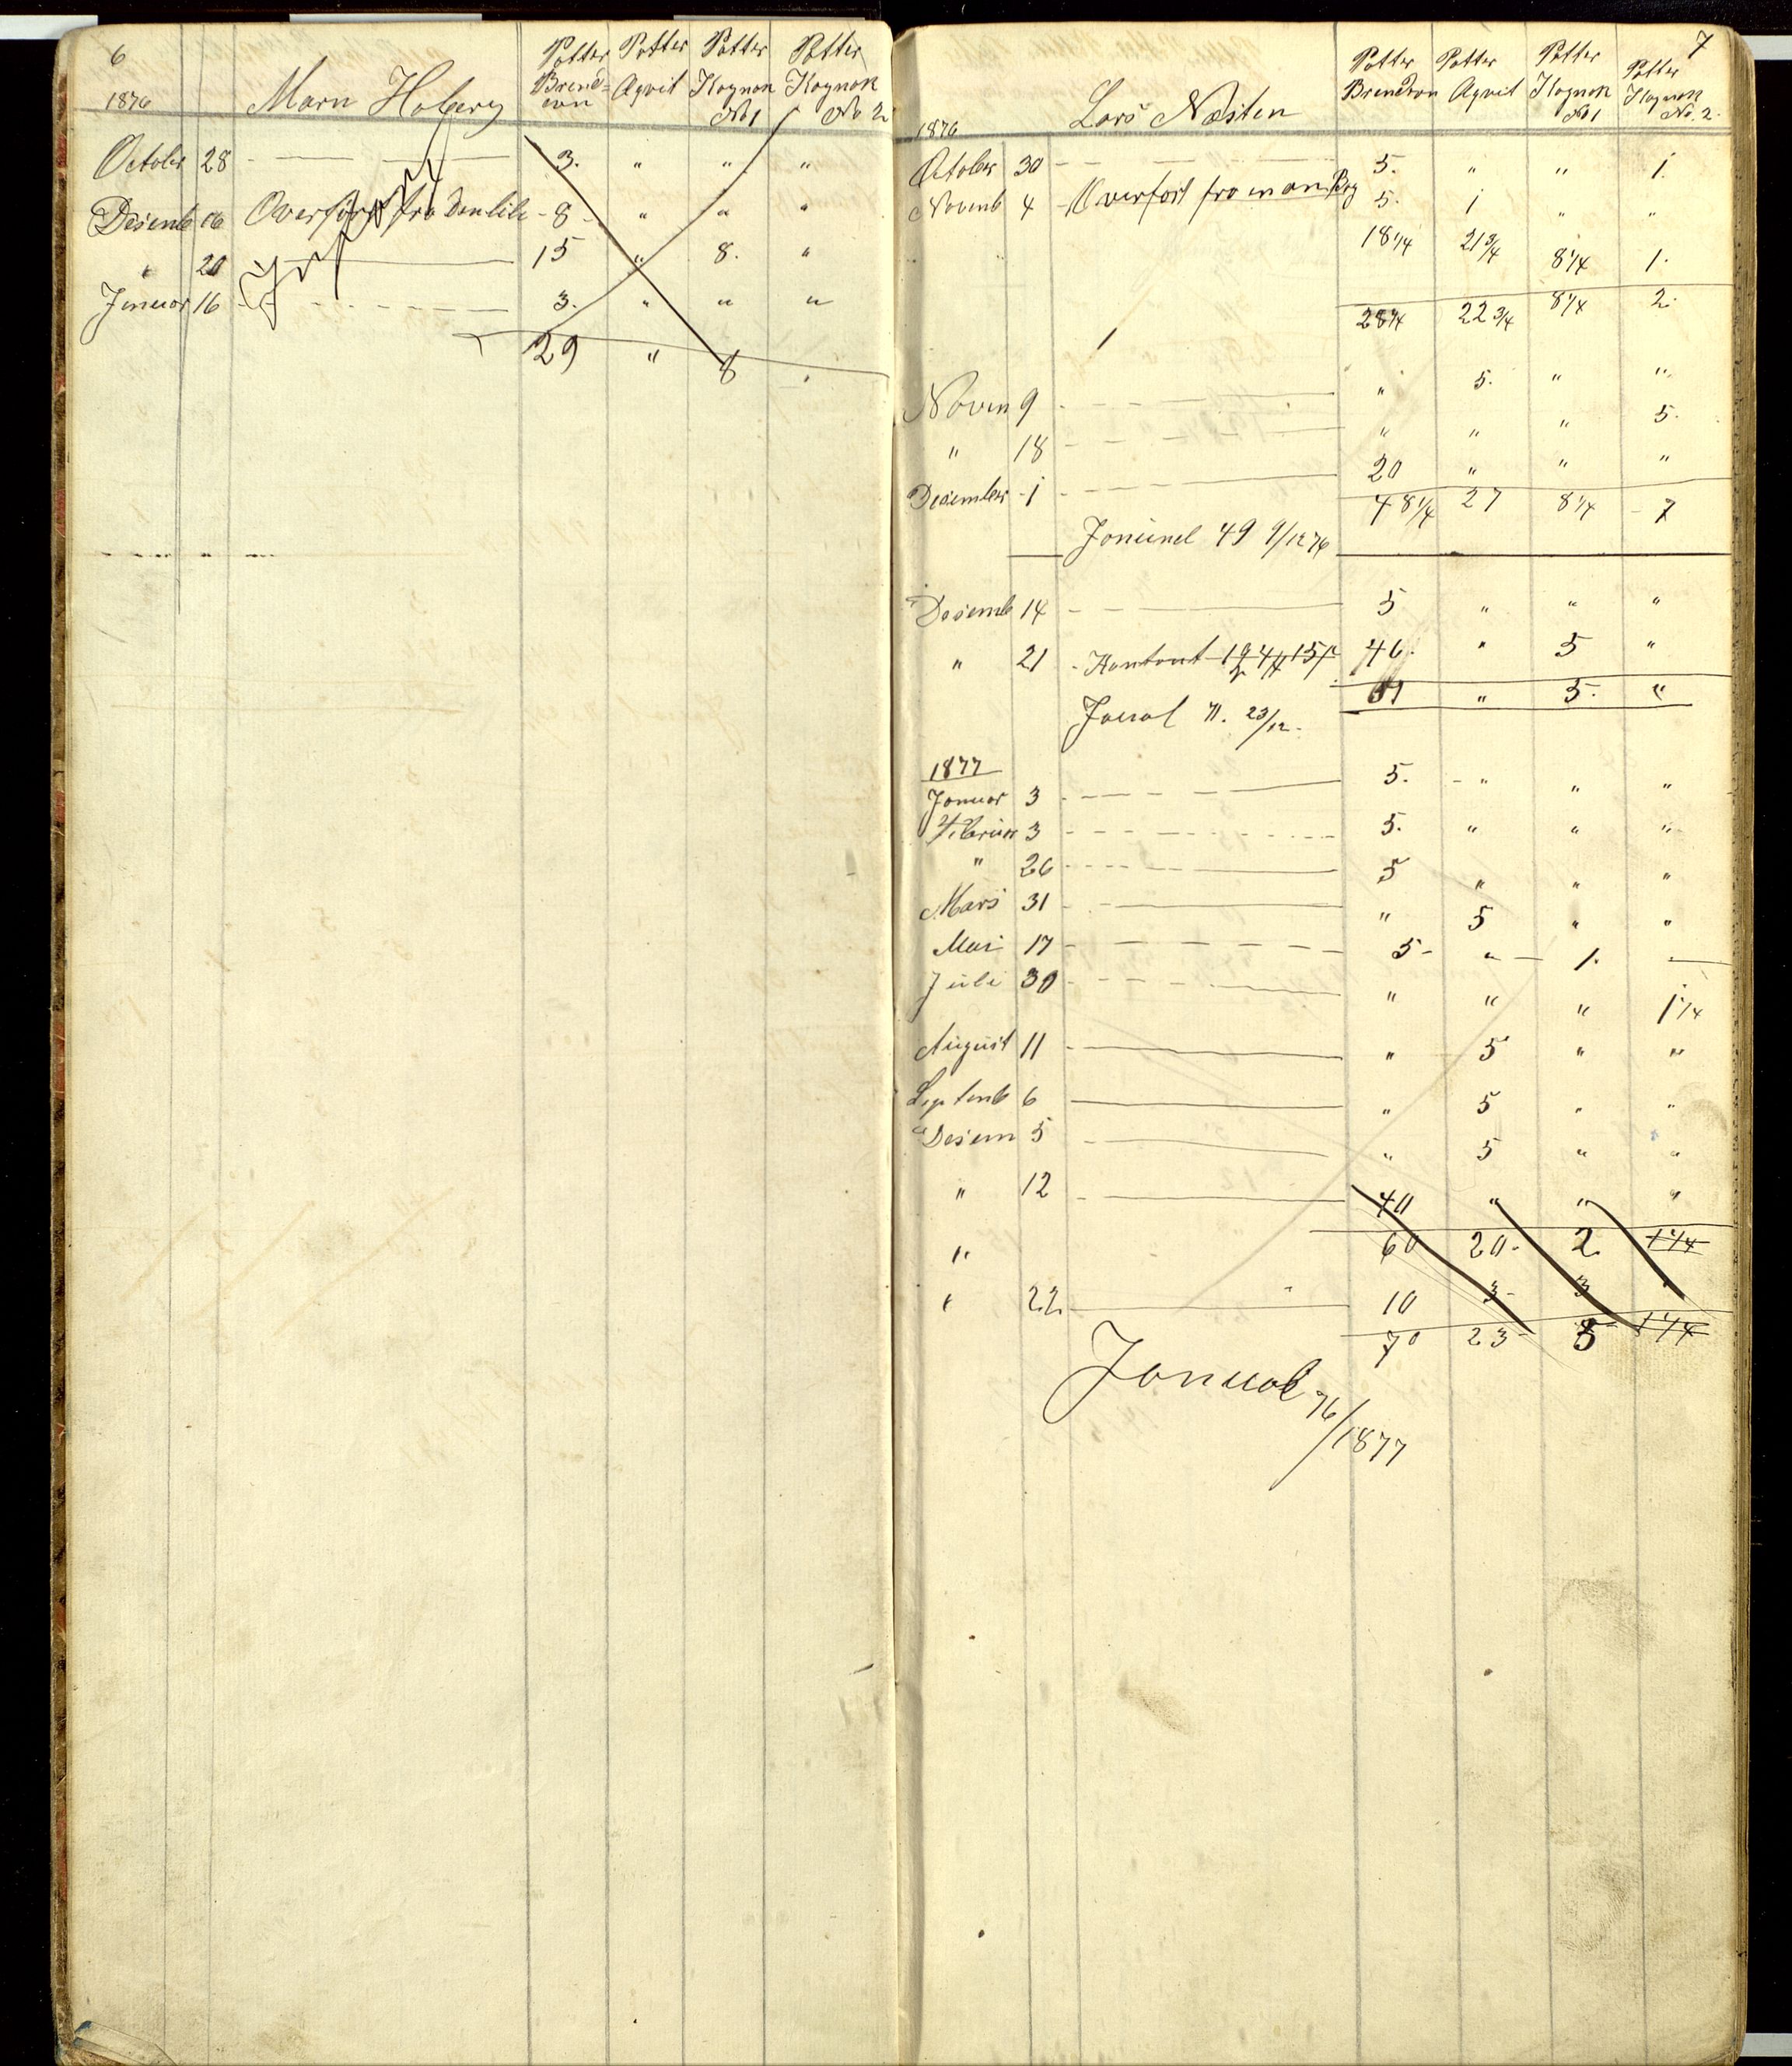 6
1876 Marn Hoberg Potter Brend=evin Potter Aqvit Potter Kognak No 1 Potter Kognak No 2
Octobr 28 3. " " "
Desemb 16 Overført fra den lile 8 " " "
" 20 15 " 8. "
Januar 16 3. " " "
29 " 8 "
7
1876 Lars Næsten Potter Brendvin Potter Aqvit Potter Kognak No 1 Potter Kognak No. 2.
October 30 5. " " 1.
Novemb 4 Overført fra 5. 1 " "
18 1/4 21 3/4 8 1/4 1.
28 1/4 22 3/4 8 1/4 2.
Novem 9 " 5. " "
" 18 " " " 5.
December 1 20 " " "
48 1/4 27 8 1/4 7
49 1/12 76
Desemb 14 5 " " "
" 21 Kontant 46. " 5 "
51 " 5. "
71. 23/12.
1877
Januar 3 5. " " "
Februar 3 5. " " "
" 26 5 " " "
Mars 31 " 5 " "
Mai 17 5 - " - 1. —
Juli 30 " " " 1 1/4
August 11 " 5 " "
Septemb 6 " 5 " "
Desem 5 " 5 " "
" 12 40 " " "
" 60 20. 2 1 1/4
" 22 10 3 3 "
70 23 5 1 1/4
76/1877